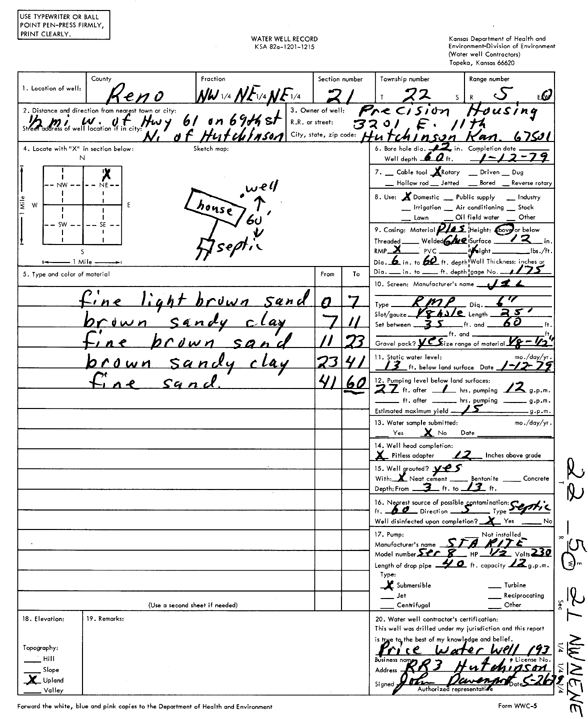 USE TYPEWRITER OR BALL
POINT PEN-PRESS FIRMLY,
PRINT CLEARLY.
WATER WELL RECORD
KSA 82a-1201-1215
Kansas Department of Health and
Environment-Division of Environment
(Water well Contractors)
Topeka, Kansas 66620
1. Location of well:
County
Reno
Fraction
NW 1/4 NE 1/4 NE 1/4
Section number
21
Township number
T 22 S
Range number
R 5 E/W
2. Distance and direction from nearest town or city:
1/2 mi w. of Hwy 61 on 69th st
Street address of well location if in city:
N. of Hutchinson
3. Owner of well: Precision Housing
R.R. or street: 3201 E. 11th
City, state, zip code: Hutchinson Kan. 67501
4. Locate with "X" in section below:
N
NW NE
X
W E
SW SE
S
1 Mile
1 Mile
Sketch map:
well
house
60'
septic
6. Bore hole dia. 12 in. Completion date
Well depth 60 ft. 1-12-79
7. Cable tool X Rotary Driven Dug
Hollow rod Jetted Bored Reverse rotary
8. Use: X Domestic Public supply Industry
Irrigation Air conditioning Stock
Lawn Oil field water Other
9. Casing: Material Plas Height: Above or below
Threaded Welded Glue Surface 12 in.
RMP X PVC Weight lbs./ft.
Dia. 6 in. to 60 ft. depth Wall Thickness: inches or
Dia. in. to ft. depth gage No. .175
5. Type and color of material
From To
fine light brown sand 0 7
brown sandy clay 7 11
fine brown sand 11 23
brown sandy clay 23 41
fine sand. 41 60
(Use a second sheet if needed)
10. Screen: Manufacturer's name
Type RMP Dia. 6"
Slot/gauze 1/8 hole Length 25'
Set between 35 ft. and 60 ft.
ft. and ft.
Gravel pack? yes Size range of material 1/8-1/2"
11. Static water level: mo./day/yr.
13 ft. below land surface Date 1-12-79
12. Pumping level below land surfaces:
27 ft. after 1 hrs. pumping 12 g.p.m.
ft. after hrs. pumping g.p.m.
Estimated maximum yield 15 g.p.m.
13. Water sample submitted: mo./day/yr.
Yes X No Date
14. Well head completion:
X Pitless adapter 12 Inches above grade
15. Well grouted? yes
With: X Neat cement Bentonite Concrete
Depth: From 3 ft. to 13 ft.
16. Nearest source of possible contamination:
ft. 60 Direction S Type Septic
Well disinfected upon completion? X Yes No
17. Pump: Not installed
Manufacturer's name STA RITE
Model number Ser 8 HP 1/2 Volts 230
Length of drop pipe 40 ft. capacity 12 g.p.m.
Type:
X Submersible Turbine
Jet Reciprocating
Centrifugal Other
18. Elevation:
Topography:
Hill
Slope
X Upland
Valley
19. Remarks:
20. Water well contractor's certification:
This well was drilled under my jurisdiction and this report
is true to the best of my knowledge and belief.
Price Water Well 193
Business name License No.
Address RR3 Hutchinson
Signed John Davenport
Authorized representative
Forward the white, blue and pink copies to the Department of Health and Environment
Form WWC-5
T 22 R 5 E W Sec 21 1/4 1/4 1/4 NW NE NE